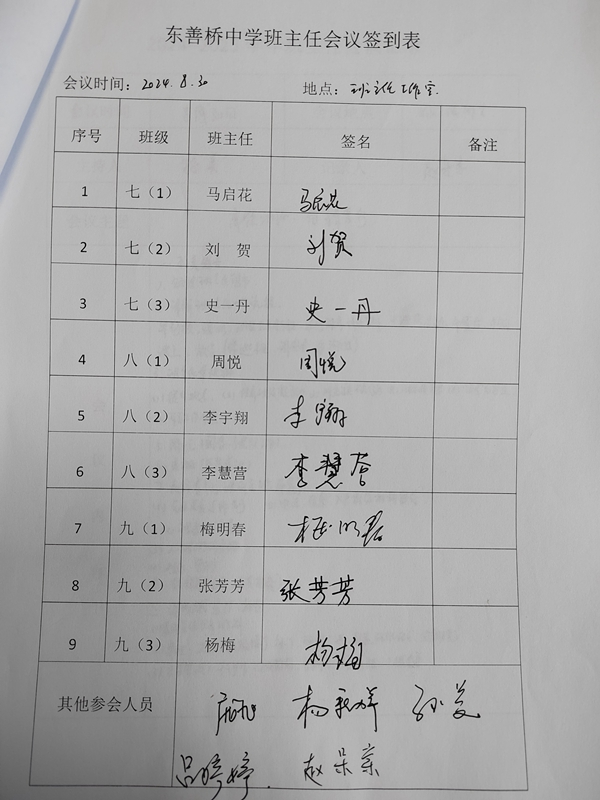 东善桥中学班主任会议签到表
会议时间：2024.8.30 地点：班主任工作室.
序号 班级 班主任 签名 备注
1 七（1） 马启花 马启花
2 七（2） 刘 贺 刘贺
3 七（3） 史一丹 史一丹
4 八（1） 周悦 周悦
5 八（2） 李宇翔 李宇翔
6 八（3） 李慧营 李慧营
7 九（1） 梅明春 梅明春
8 九（2） 张芳芳 张芳芳
9 九（3） 杨梅 杨梅
其他参会人员
吕婷婷